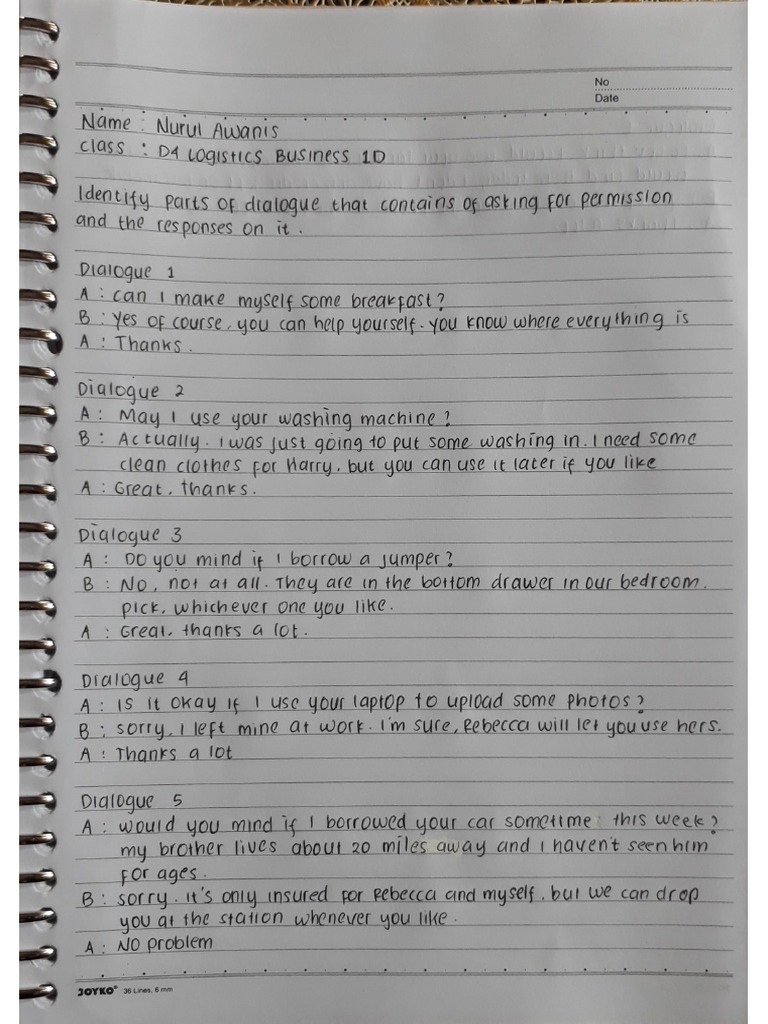 No
Date
Name : Nurul Awanis
Class : D4 Logistics Business 1D
Identify parts of dialogue that contains of asking for permission
and the responses on it.
Dialogue 1
A : Can I make myself some breakfast?
B : Yes of course, you can help yourself. You know where everything is
A : Thanks.
Dialogue 2
A : May I use your washing machine?
B : Actually. I was just going to put some washing in. I need some
clean clothes for Harry. but you can use it later if you like
A : Great, thanks.
Dialogue 3
A : Do you mind if I borrow a jumper?
B : No, not at all. They are in the bottom drawer in our bedroom.
pick, whichever one you like.
A : Great, thanks a lot.
Dialogue 4
A : Is it okay if I use your laptop to upload some photos?
B : Sorry, I left mine at work. I'm sure, Rebecca will let you use hers.
A : Thanks a lot
Dialogue 5
A : Would you mind if I borrowed your car sometime this week?
my brother lives about 20 miles away and I haven't seen him
for ages.
B : Sorry. it's only insured for Rebecca and myself. but we can drop
you at the station whenever you like.
A : No problem
JOYKO® 36 Lines, 6 mm